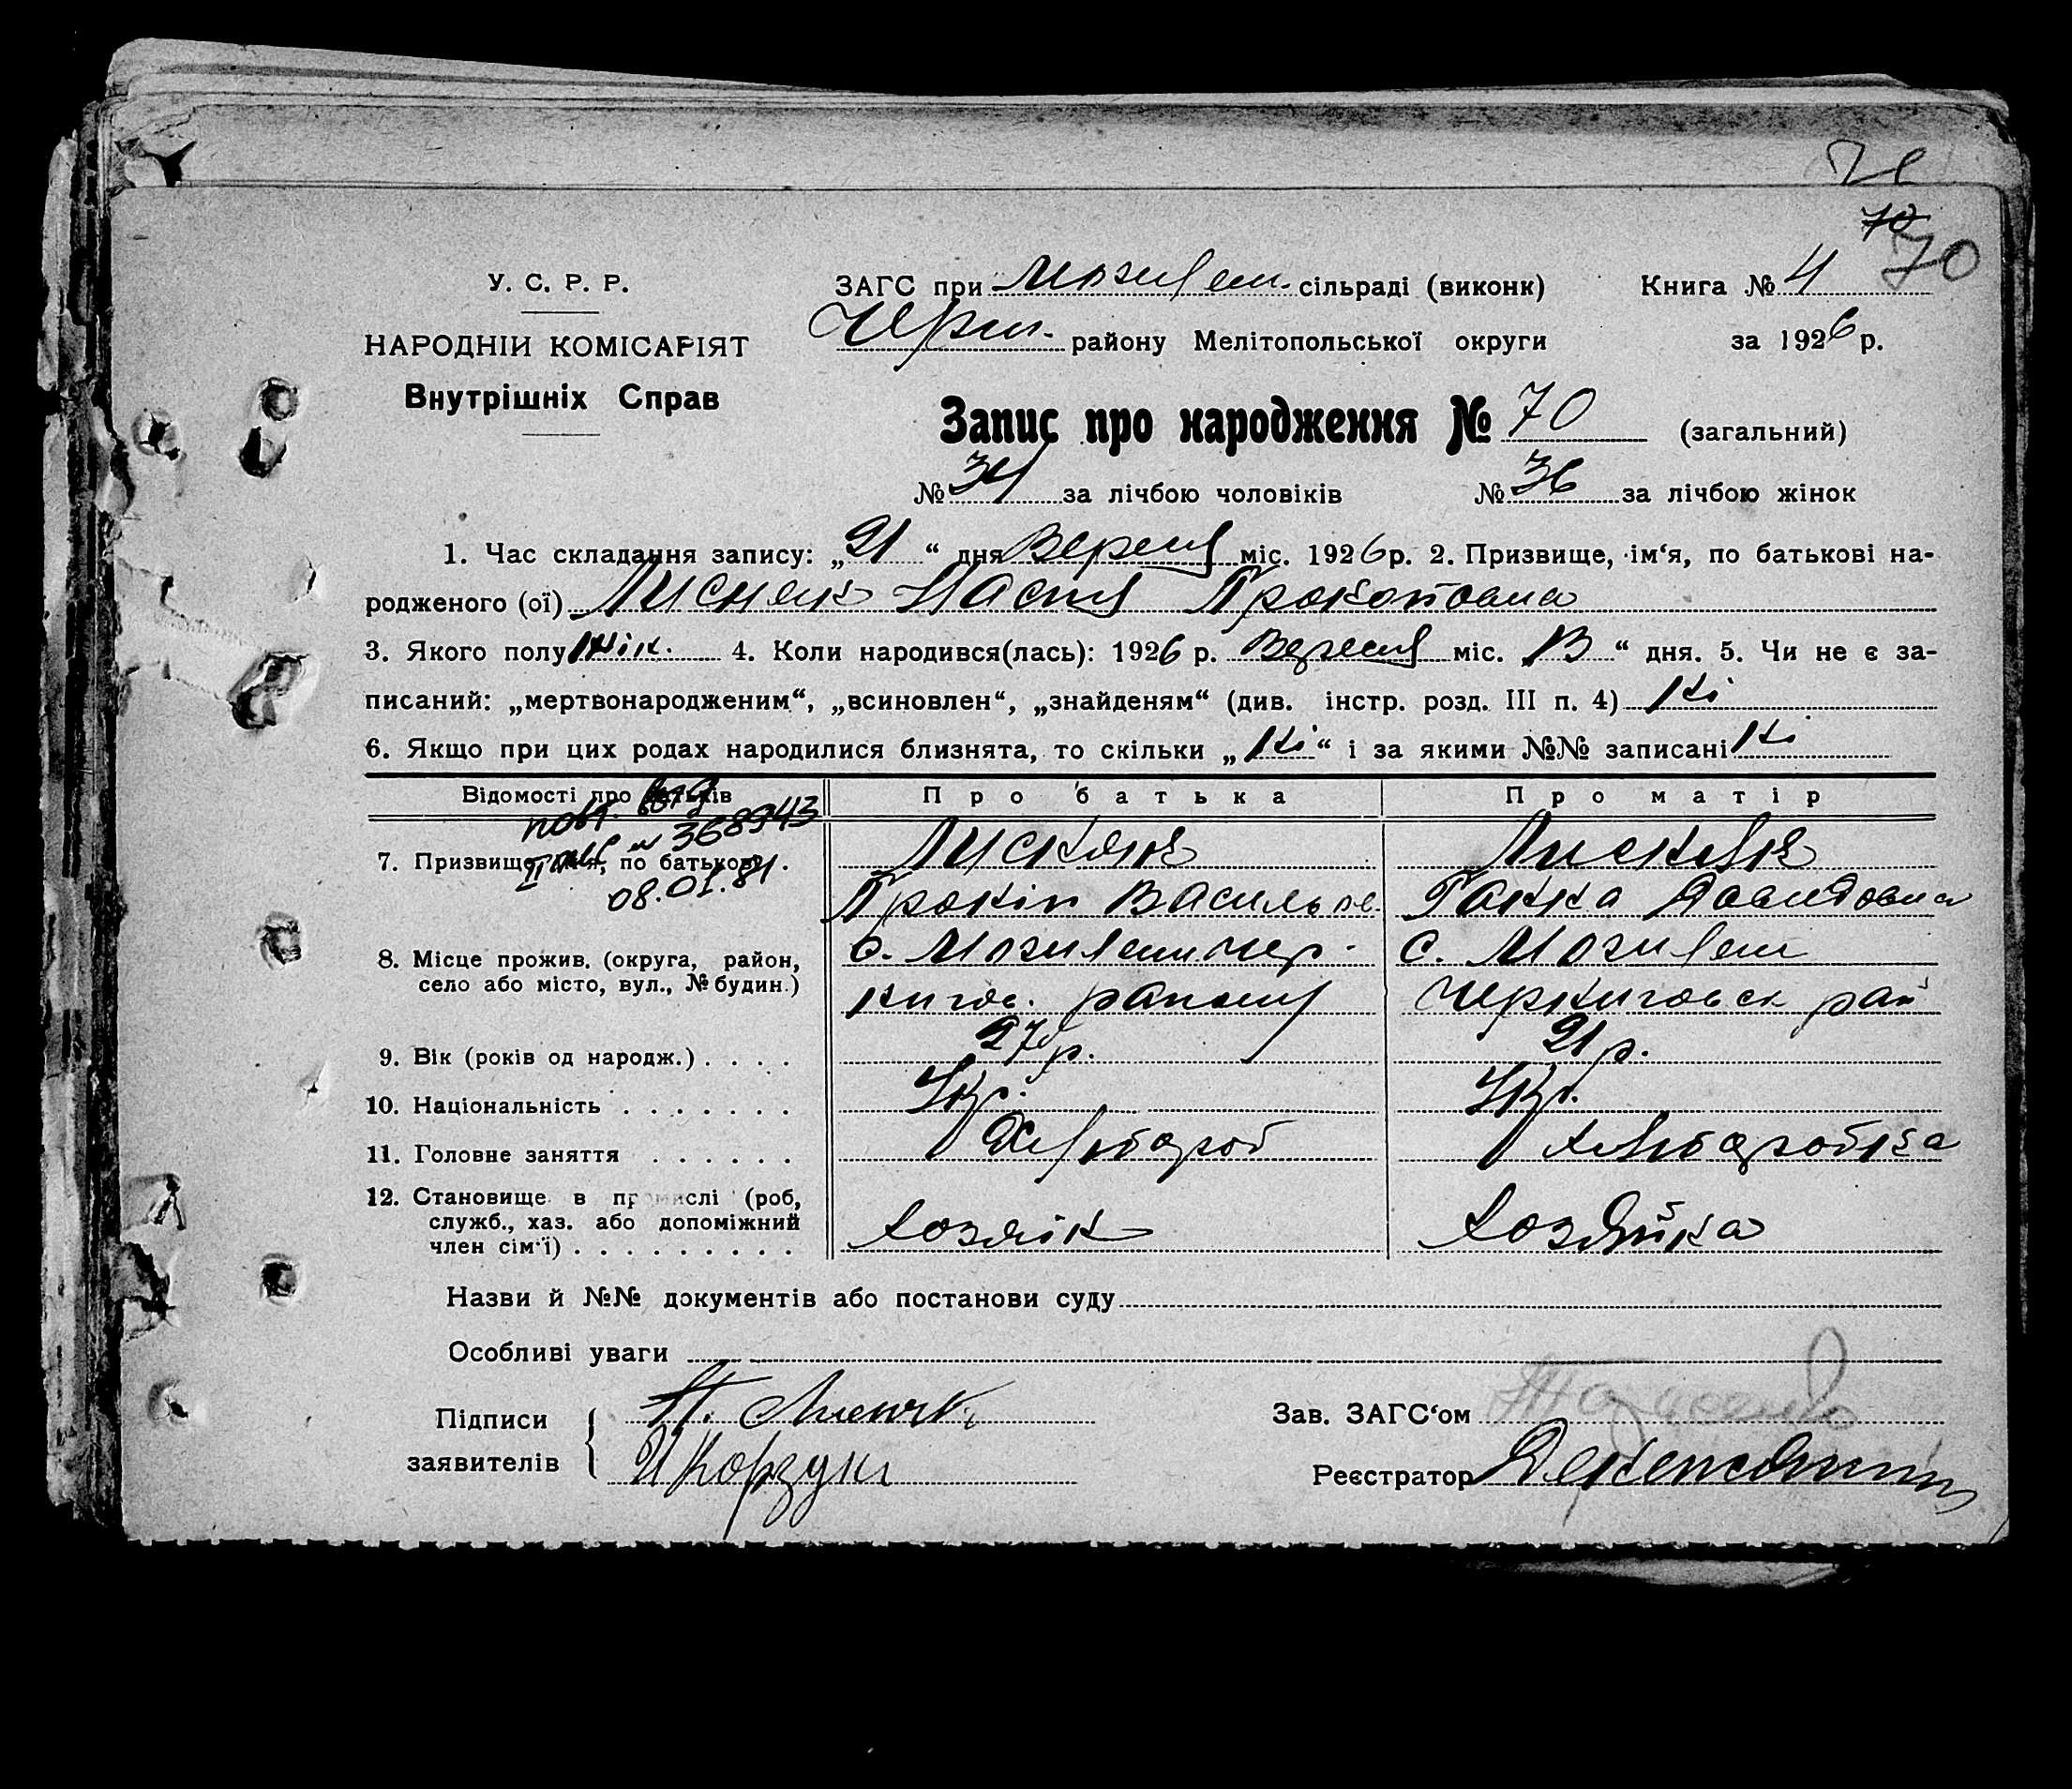 70
70
У. С. Р. Р.
ЗАГС при Могилян. сільраді (виконк)
Книга № 4
НАРОДНІЙ КОМІСАРІЯТ
Черн. району Мелітопольської округи
за 1926 р.
Внутрішніх Справ
Запис про народження № 70 (загальний)
№ 34 за лічбою чоловіків № 36 за лічбою жінок
1. Час складання запису: „21“ дня Вересня міс. 1926 р. 2. Призвище, ім‘я, по батькові на-
родженого (ої) Лисняк Настя Прокоповна
3. Якого полу жін. 4. Коли народився(лась): 1926 р. Вересня міс. 13“ дня. 5. Чи не є за-
писаний: „мертвонародженим“, „всиновлен“, „знайденям“ (див. інстр. розд. III п. 4) Ні
6. Якщо при цих родах народилися близнята, то скільки „Ні“ і за якими №№ записані Ні
Відомості про батьків
Про батька
Про матір
№ 368943
08.01.81
7. Призвище, ім‘я, по батькові.
Лисняк
Лисняк
Прокіп Васильов.
Ганна Давидовна
8. Місце прожив. (округа, район,
село або місто, вул., № будин.)
с. Могиляни Чер-
с. Могиляни
нигов. району
Черниговск рай
9. Вік (років од народж.) . . . .
27 р.
21 р.
10. Національність . . . . . . .
Укр.
Укр.
11. Головне заняття . . . . . .
Хлібороб
хліборобка
12. Становище в промислі (роб,
служб., хаз. або допоміжний
член сім‘ї) . . . . . . . . .
хозяїн
хозяйка
Назви й №№ документів або постанови суду
Особливі уваги
Підписи
заявителів
П. Лисняк
И Корзун
Зав. ЗАГС‘ом
Реєстратор